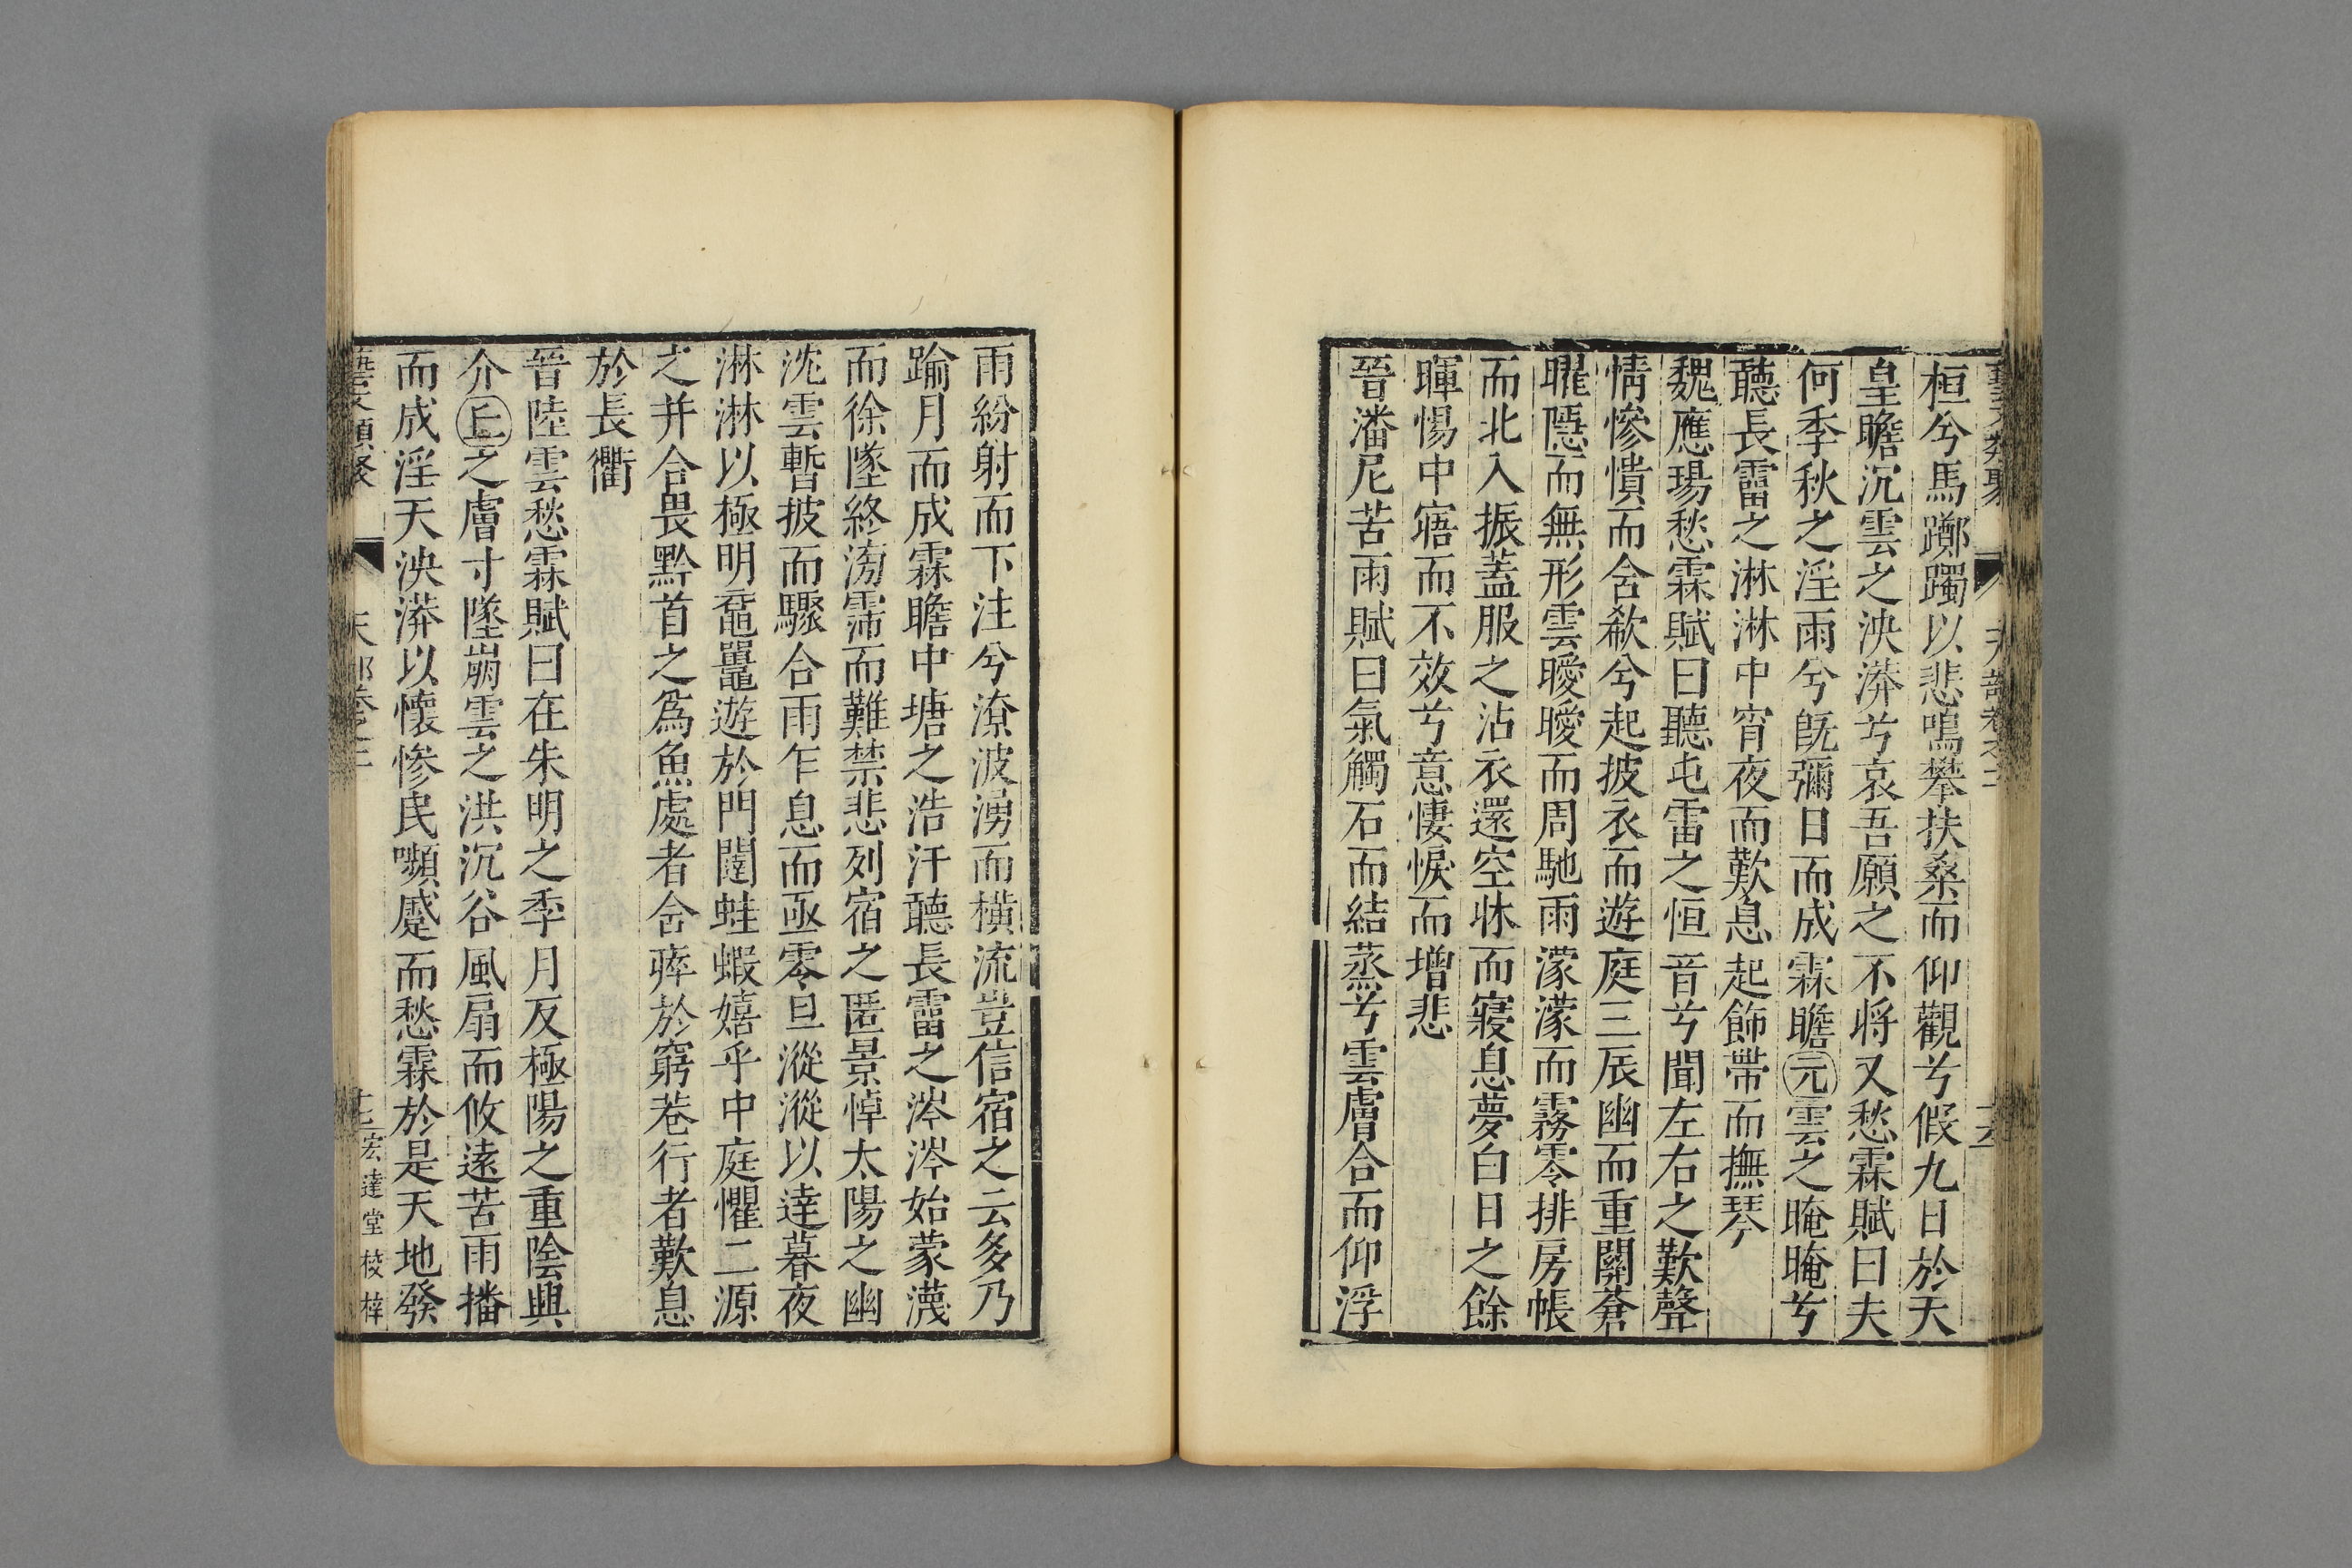 藝文類聚 天部卷之二 十六
桓兮馬躑躅以悲鳴攀扶桑而仰觀兮假九日於天
皇瞻沉雲之泱漭兮哀吾願之不將又愁霖賦曰夫
何季秋之淫雨兮旣彌日而成霖瞻元雲之晻晻兮
聽長霤之淋淋中宵夜而歎息起飾帶而撫琴
魏應瑒愁霖賦曰聽屯雷之恒音兮聞左右之歎聲
情慘憒而含欷兮起披衣而遊庭三辰幽而重關蒼
曜隱而無形雲曖曖而周馳雨濛濛而霧零排房帳
而北入振蓋服之沾衣還空牀而寢息夢白日之餘
暉惕中寤而不效兮意悽悷而增悲
晉潘尼苦雨賦曰氣觸石而結蒸兮雲膚合而仰浮
雨紛射而下注兮潦波湧而橫流豈信宿之云多乃
踰月而成霖瞻中塘之浩汗聽長霤之涔涔始蒙瀎
而徐墜終滂霈而難禁悲列宿之匿景悼太陽之幽
沈雲暫披而驟合雨乍息而亟零旦漎漎以達暮夜
淋淋以極明黿鼉遊於門闥蛙蝦嬉乎中庭懼二源
之并合畏黔首之爲魚處者含瘁於窮巷行者歎息
於長衢
晉陸雲愁霖賦曰在朱明之季月反極陽之重陰興
介丘之膚寸墜崩雲之洪沉谷風扇而攸遠苦雨播
而成淫天泱漭以懷慘民嚬蹙而愁霖於是天地發
藝文類聚 天部卷之二 十七 宏達堂校梓